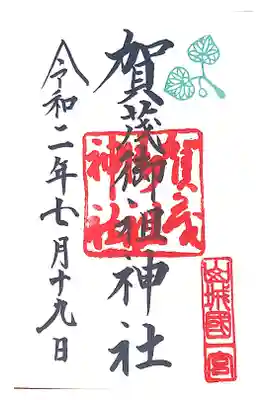 山城國一宮
賀茂御祖神社
賀茂
神社
令和二年七月十九日